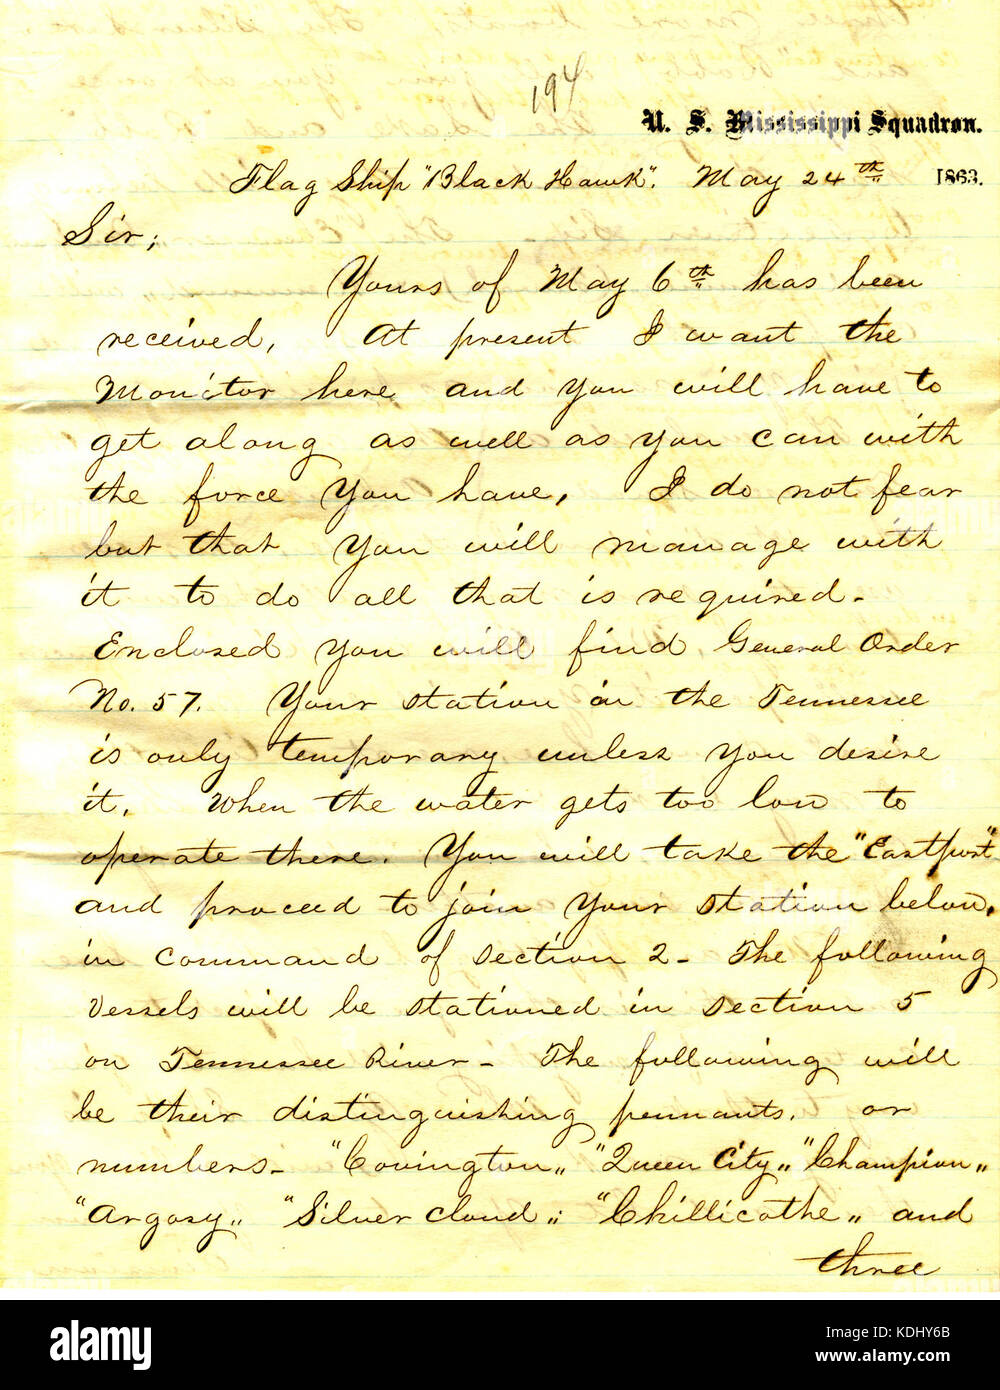 194
U. S. Mississippi Squadron.
Flag Ship "Black Hawk". May 24th 1863.
Sir;
Yours of May 6th has been
received, At present I want the
Monitor here and you will have to
get along as well as you can with
the force you have, I do not fear
but that you will manage with
it to do all that is required -
Enclosed you will find General Order
No. 57. Your station in the Tennessee
is only temporary unless you desire
it. When the water gets too low to
operate there. You will take the "Eastport"
and proceed to join your station below,
in command of section 2 - The following
Vessels will be stationed in section 5
on Tennessee River - The following will
be their distinguishing pennants. or
numbers - "Covington" "Queen City" "Champion"
"Argosy" "Silver Cloud" "Chillicothe" and
three
alamy
Image ID: KDHY6B
www.alamy.com